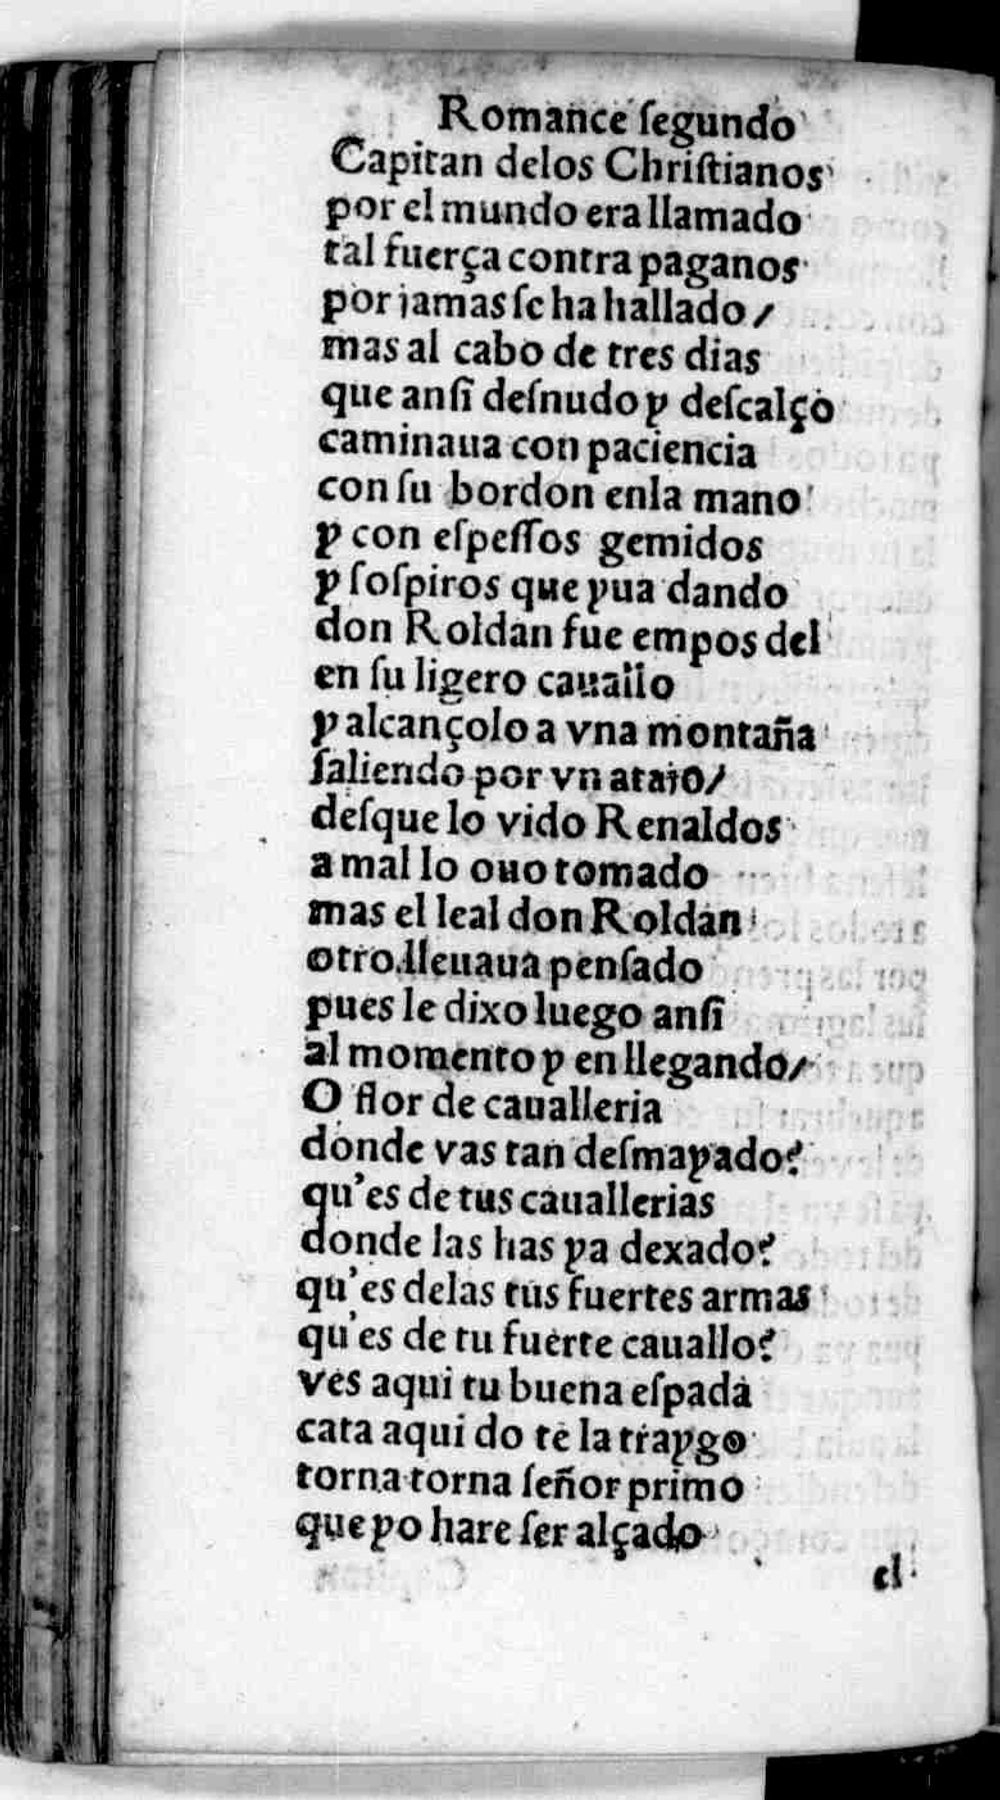 Romance ſegundo
Capitan delos Chriſtianos
por el mundo era llamado
tal fuerça contra paganos
por jamas ſe ha hallado /
mas al cabo de tres dias
que anſi deſnudo y deſcalço
caminaua con paciencia
con ſu bordon enla mano
y con eſpeſſos gemidos
y ſoſpiros que yua dando
don Roldan fue empos del
en ſu ligero cauallo
y alcançolo a vna montaña
ſaliendo por vn atajo /
deſque lo vido Renaldos
a mal lo ouo tomado
mas el leal don Roldan
otro lleuaua penſado
pues le dixo luego anſi
al momento y en llegando /
O flor de caualleria
donde vas tan deſmayado?
qu'es de tus cauallerias
donde las has ya dexado?
qu'es delas tus fuertes armas
qu'es de tu fuerte cauallo?
ves aqui tu buena eſpada
cata aqui do te la traygo
torna torna ſeñor primo
que yo hare ſer alçado
el